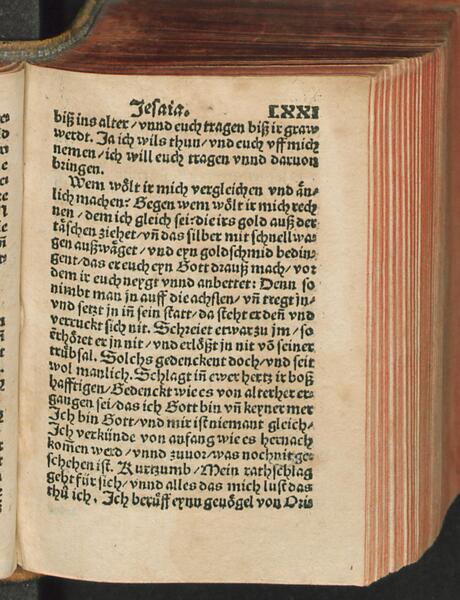 Jesaia. LXXI
biß ins alter / vnnd euch tragen biß ir graw
werdt. Ja ich wils thun / vnd euch vff mich
nemen / ich will euch tragen vnnd daruon
bringen.
Wem wölt ir mich vergleichen vnd än-
lich machen? Gegen wem wölt ir mich rech
nen / dem ich gleich sei? die irs gold auß der
täschen ziehet / vñ das silber mit schnellwa-
gen außwäget / vnd eyn goldschmid bedin-
gent / das er euch eyn Gott drauß mach / vor
dem ir euch neygt vnnd anbettet: Denn so
nimbt man jn auff die achslen / vñ tregt jn /
vnd setzt jn iñ sein statt / da steht er deñ vnd
verruckt sich nit. Schreiet etwar zu jm / so
erhöret er jn nit / vnd erlößt jn nit vō seiner
trübsal. Solchs gedenckent doch / vnd seit
wol manlich. Schlagt iñ ewer hertz ir boß
hafftigen / Bedenckt wie es von alterher er-
gangen sei / das ich Gott bin vñ keyner mer
Ich bin Gott / vnd mir ist niemant gleich /
Ich verkünde von anfang wie es hernach
kom̃en werd / vnnd zuuor / was noch nit ge-
schehen ist. Kurtzumb / Mein rathschlag
geht für sich / vnnd alles das mich lust das
thů ich. Ich berüff eynn geuögel von Oris